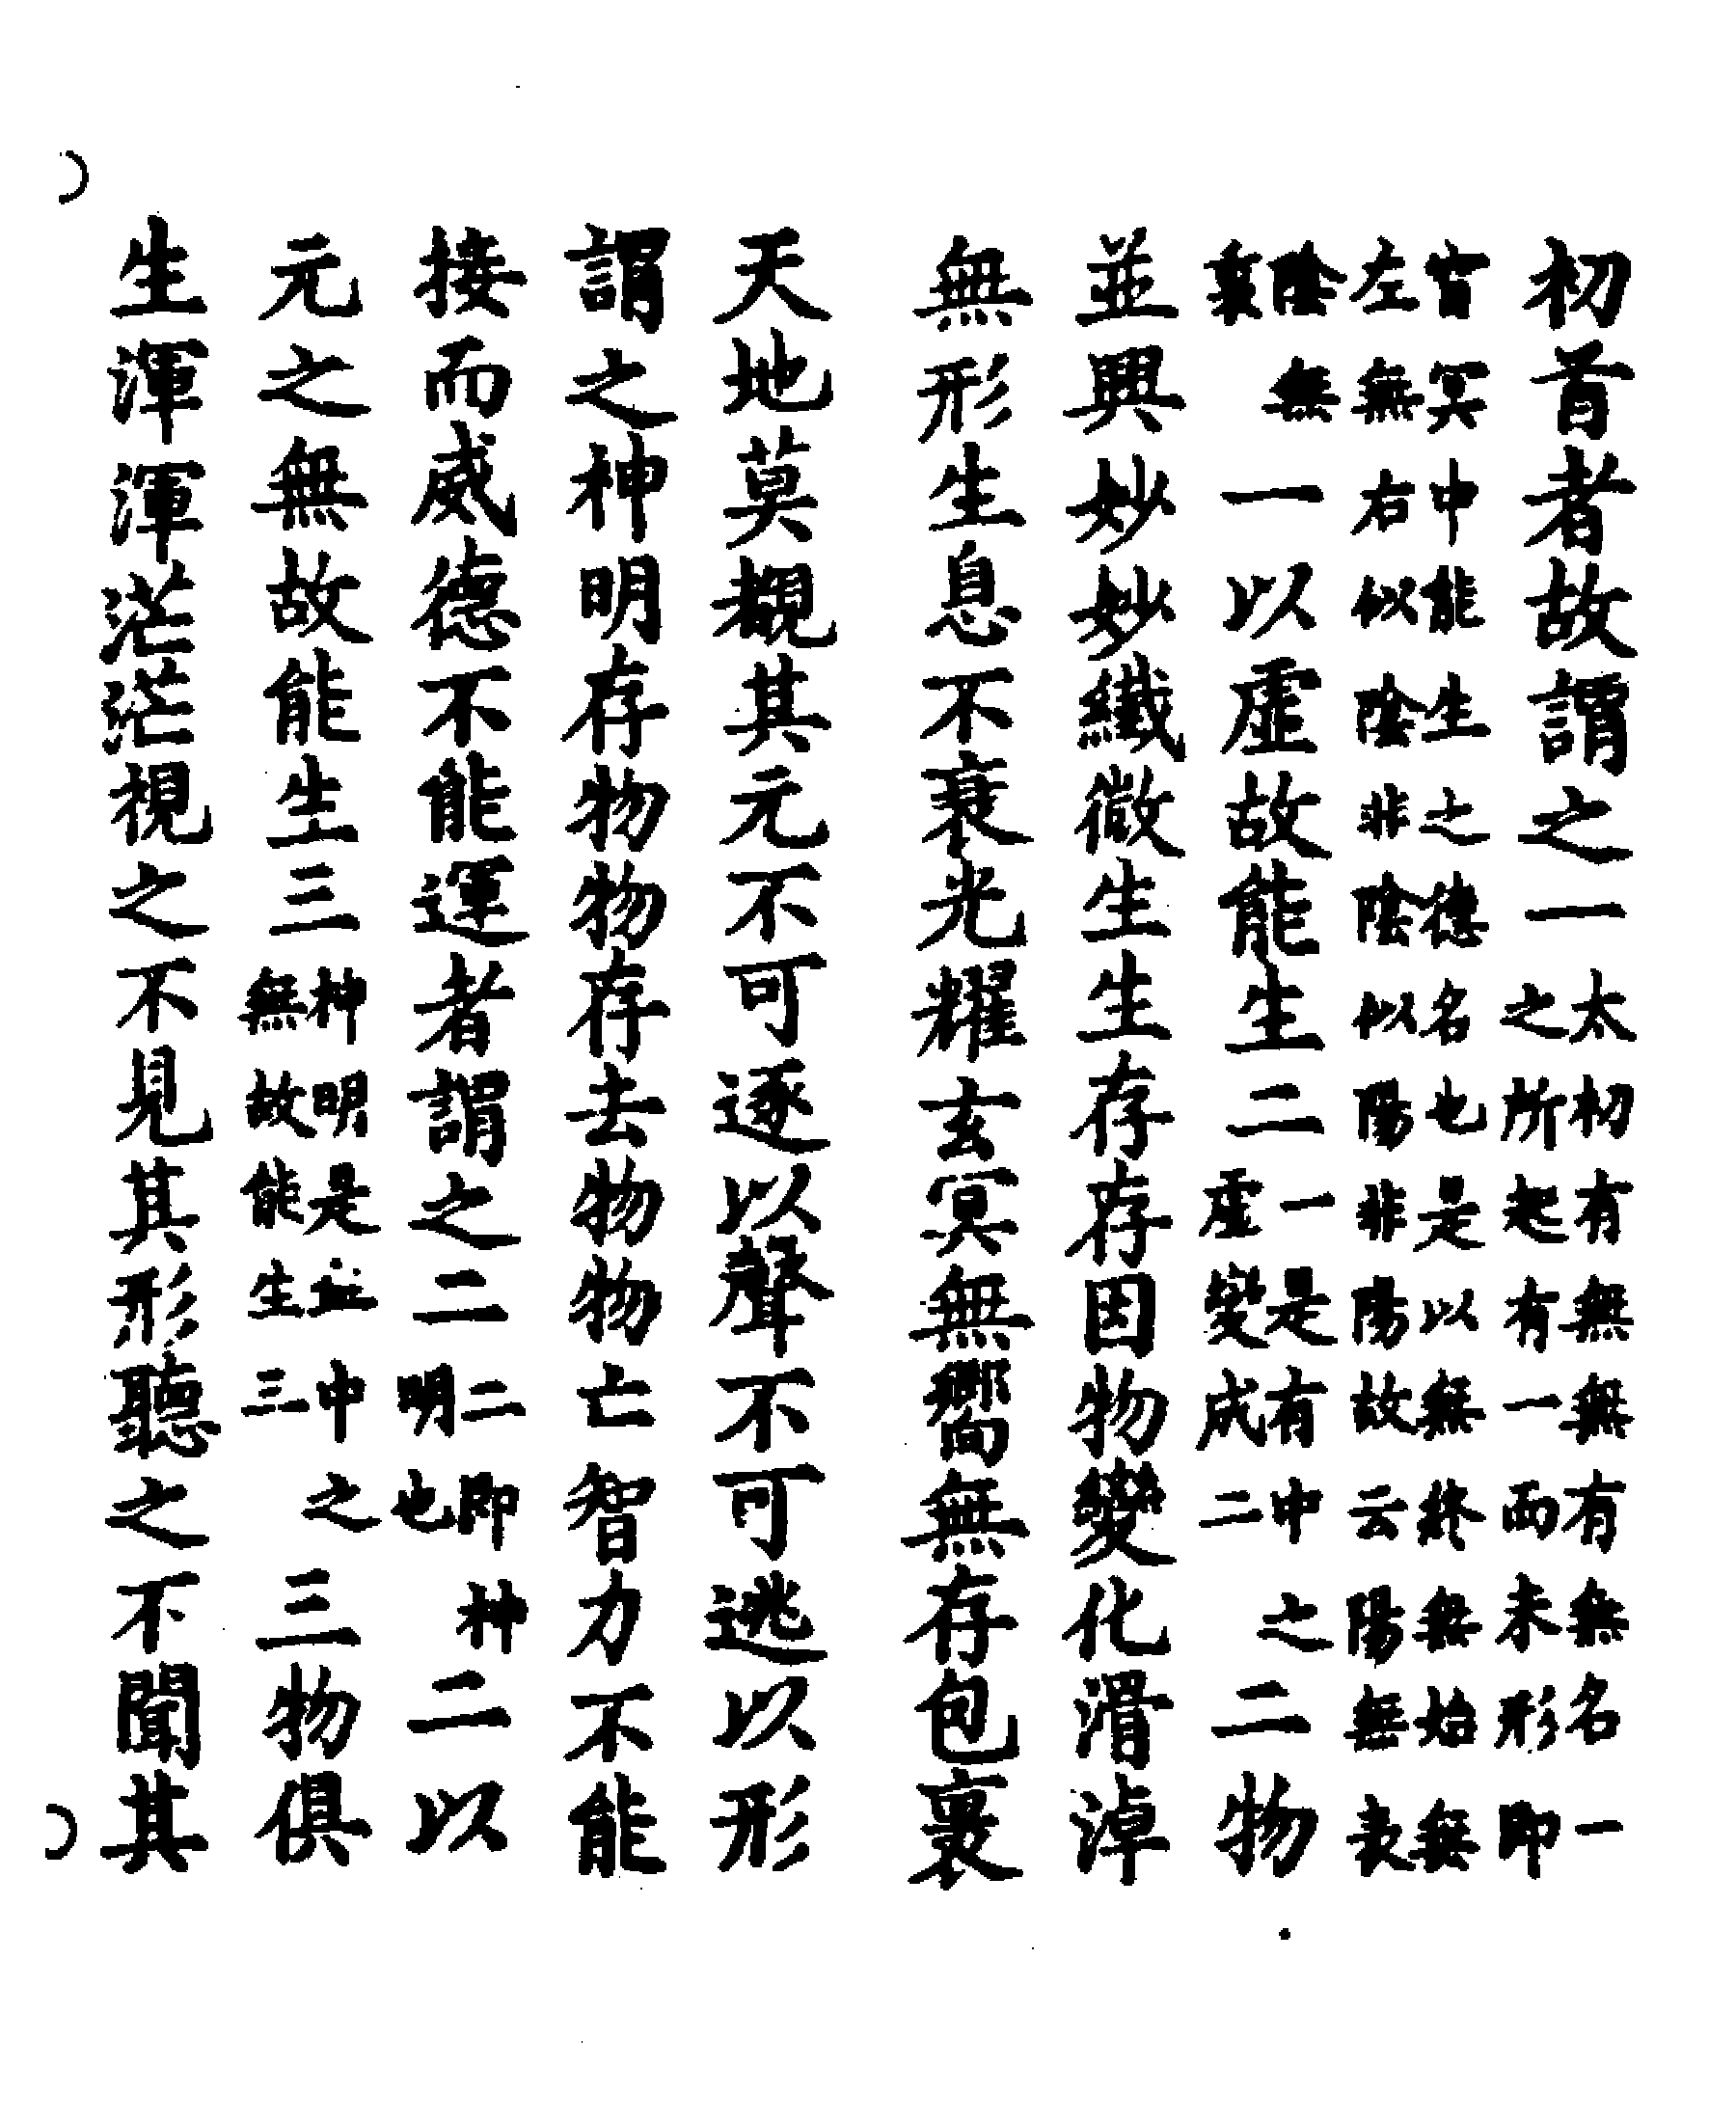 初首者故謂之一太初有無無有無名一之所起有一而未形即
窅冥中能生之德名也是以無終無始無左無右似陰非陰似陽非陽故云陽無表
陰無裏一以虛故能生二一是有中之虛變成二二物
並興妙妙纖微生生存存因物變化滑淖
無形生息不衰光耀玄冥無嚮無存包裹
天地莫覩其元不可逐以聲不可逃以形
謂之神明存物物存去物物亡智力不能
接而威德不能運者謂之二二即神明也二以
元之無故能生三神明是並中之無故能生三三物俱
生渾渾茫茫視之不見其形聽之不聞其